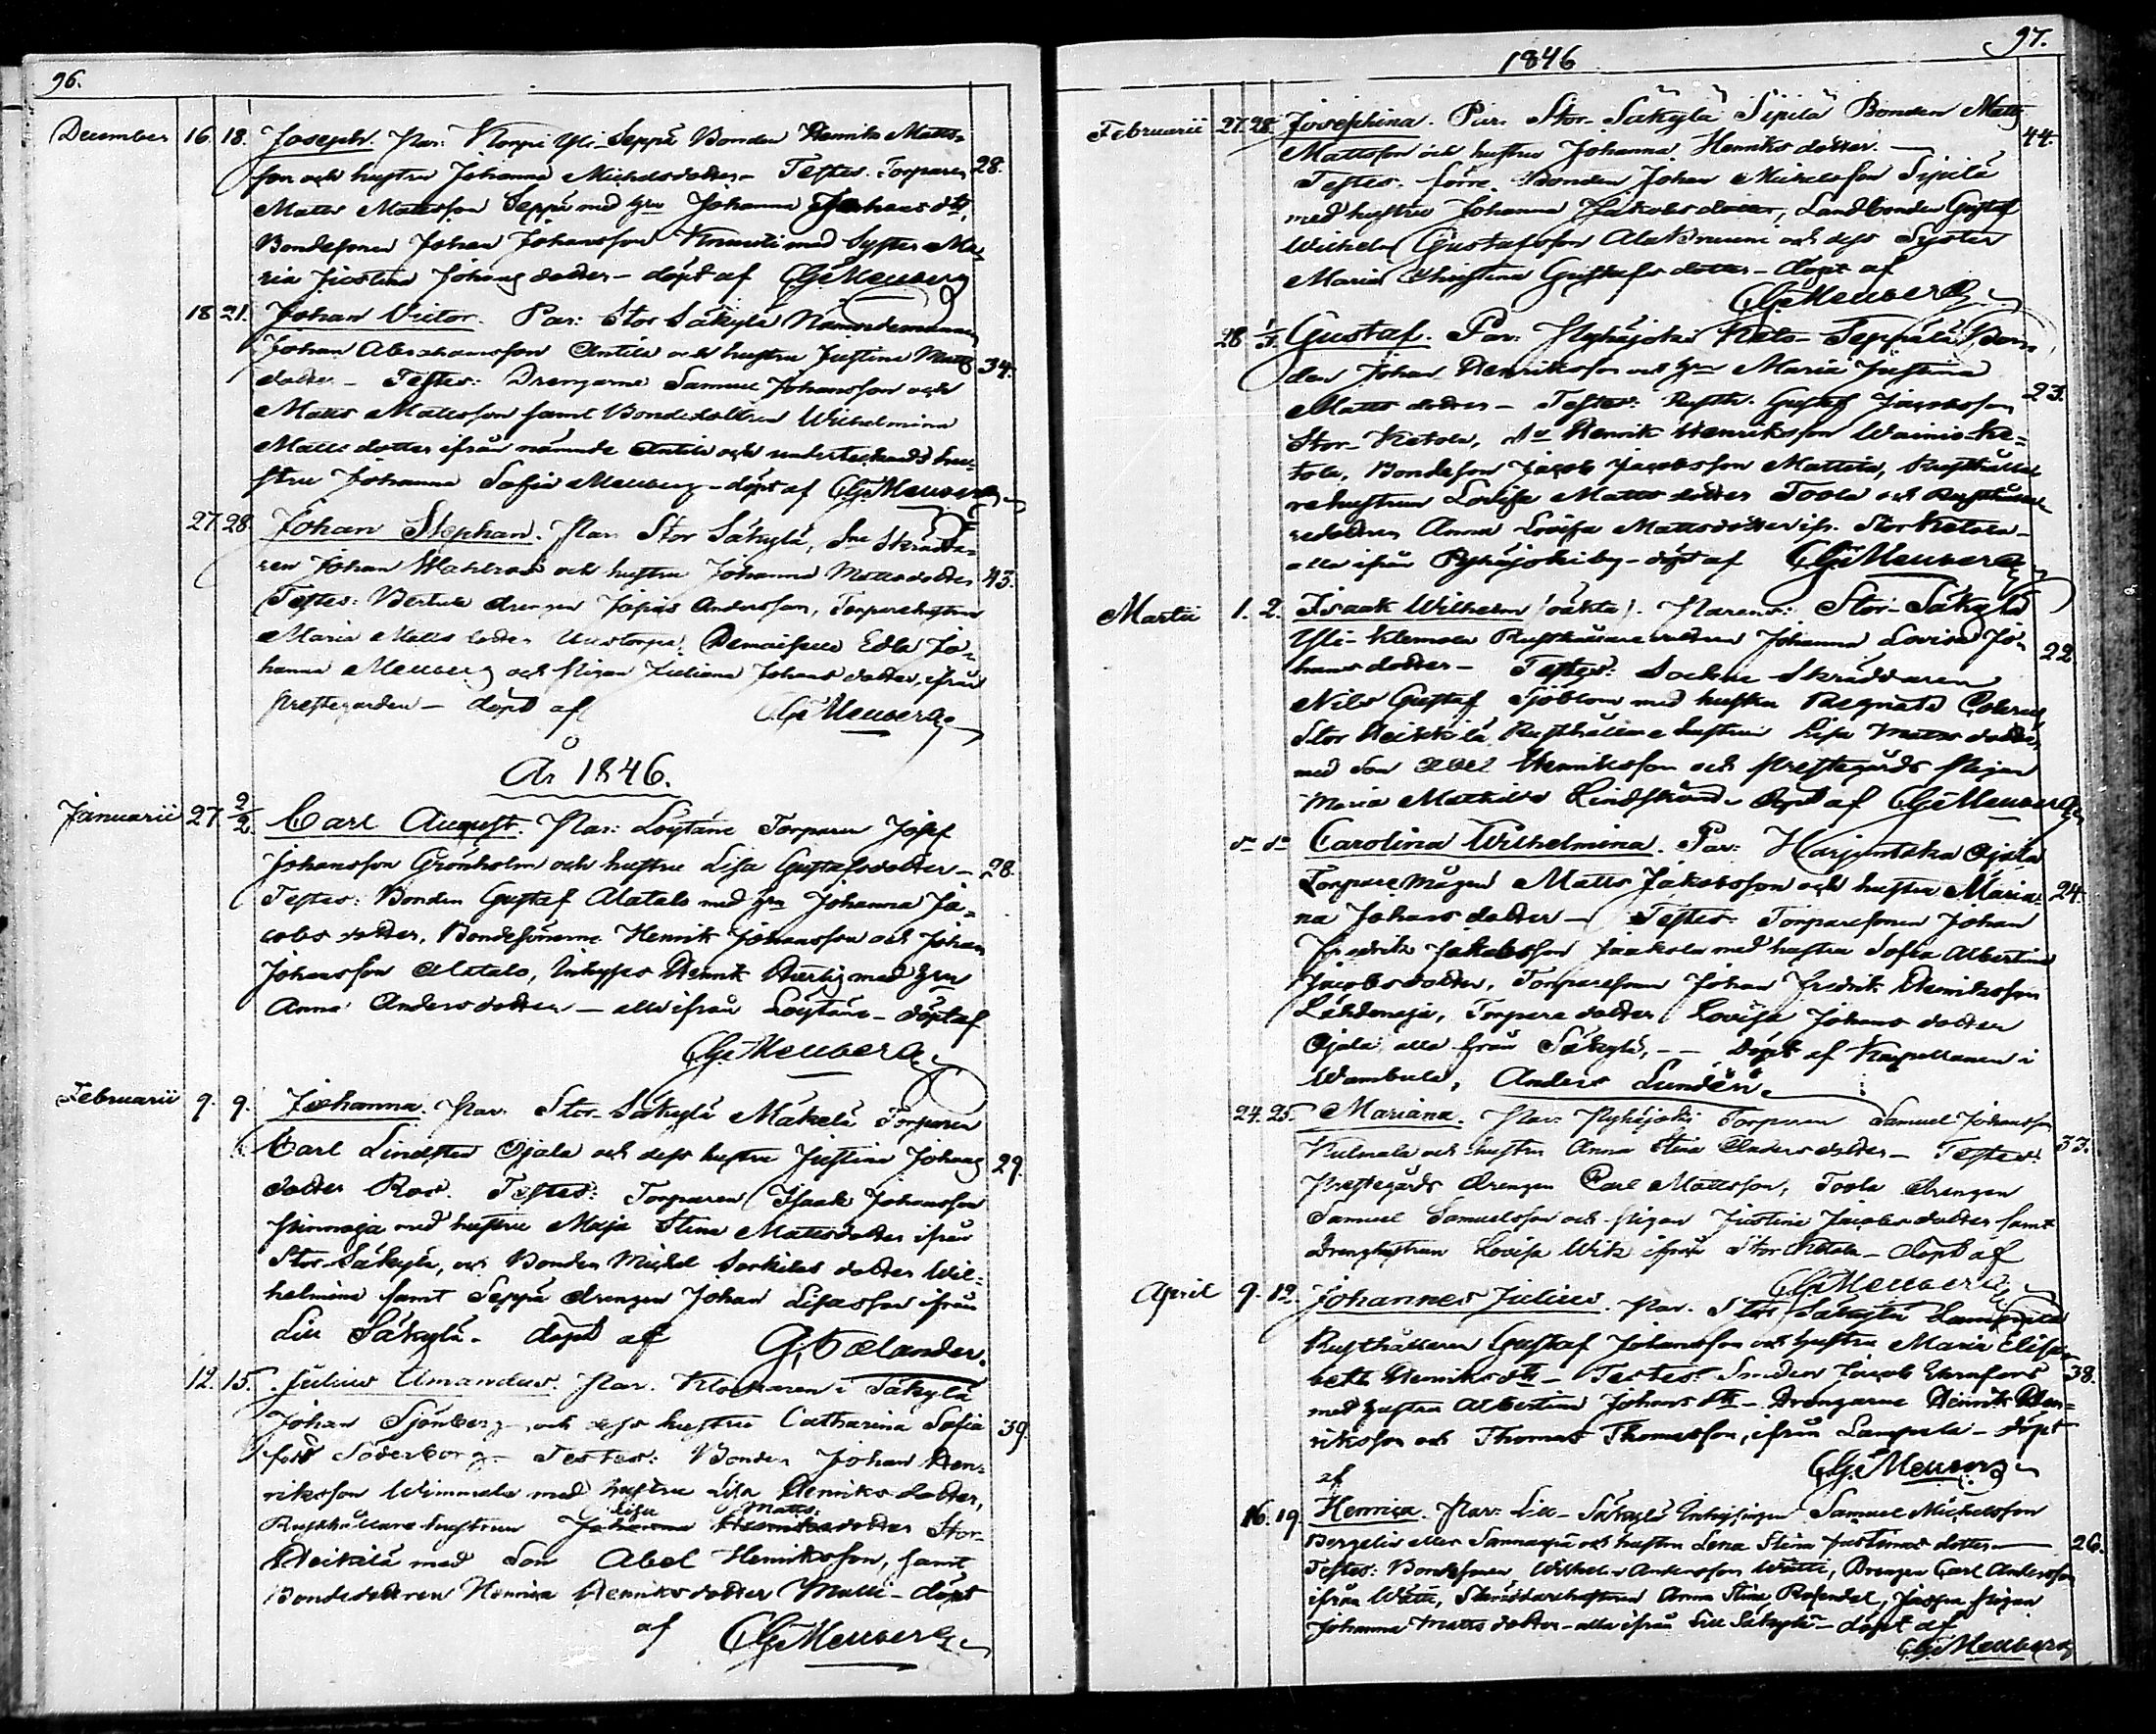 96.
December 16. 18. Joseph. Par: Korpi Yli-Seppä Bonden Henrik Matts-
son och hustru Johanna Michelsdotter – Testes. Torparen 28.
Matts Mattsson Seppä med hru Johanna Johansdtr,
Bondesonen Johan Johansson med Syster Ma-
ria Justina Johansdotter – döpt af CGMeuberg
18 21. Johan Victor. Par: Stor Säkylä Nämndemannen
Johan Abrahamsson Antila och hustru Justina Matts 34.
dotter – Testes: Drengarne Samuel Johansson och
Matts Mattsson samt Bondedottren Wilhelmina
Mattsdotter ifrån nämnde Antila och undertecknads hu-
stru Johanna Sofia Meuberg – döpt af CGMeuberg
27. 28. Johan Stephan. Par: Stor Säkylä, Sne Skrädda-
ren Johan och hustru Johanna Mattsdotter 43.
Testes: drengen Andersson, Torparehustrun
Maria Mattsdotter Demoiselle Edla Jo-
hanna Meuberg och Pigan Juliana Johansdotter, ifrån
Prestegården – döpt af CGMeuberg
År 1846.
Januarii 27. 2/2. Carl August. Par: Löytäne Torparen Josef
Johansson Grönholm och hustru Lisa Gustafsdotter – 28.
Testes: Bonden Gustaf Alatalo med hru Johanna Ja-
cobsdotter, Bondesönerne Henrik Johansson och Johan
Johansson Alatalo, Inhyses Henrik Härtig med hru
Anna Andersdotter – alla ifrån Löytäne – döpt af
CGMeuberg
Februarii 9. 9. Johanna. Par. Stor-Säkylä Mäkelä Torparen
Carl Lindsten Ojala och dess hustru Justina Johans 29.
dotter Ros. Testes: Torparen Isaak Johansson
med hustru Maja Stina Mattsdotter ifrån
Stor-Säkylä, och Bonden Michel dotter Wil-
helmina samt Seppä drengen Johan ifrån
Lill Säkylä – döpt af G. Salander.
12. 15. Julius Amandus. Par. Klockaren i Säkylä
Johan Sjönberg och dess hustru Catharina Sofia 39.
född Söderborg – Testes: Bonden Johan Hen-
riksson Wimmala med hustru Lisa Henriksdotter,
Lisa Matts
Rusthållare hustrun Johanna Henriksdotter Stor-
Heikilä med Son Abel Henriksson, samt
Bondedottren Henrica Henriksdotter – döpt
af CGMeuberg
1846 97.
Februarii 27. 28. Josephina. Par. Stor-Säkylä Sipilä Bonden Matts
Mattsson och hustru Johanna Henriksdotter. – 44.
Testes: förre Bonden Johan Michelsson Sipilä
med hustru Johanna Jakobsdotter, Landbonden Gustaf
Wilhelm Gustafsson och dess Syster
Maria Christina Gustafsdotter – döpt af
CGMeuberg
28 1/3. Gustaf. Par. Pyhäjoki Keto-Seppälä Bon-
den Johan Henriksson och hru Maria Justina
Mattsdotter – Testes: Rusth. Gustaf Jacobsson 23.
Stor-Ketola, do Henrik Henriksson Wainio-Ke-
tola, Bondeson Jacob Jacobsson Mattila, Rusthålla-
rehustrun Lovisa Mattsdotter Toola och Rusthålla-
redottren Anna Lovisa Mattsdotter ifr. Stor Ketola –
alla ifrån Pyhäjoki by – döpt af CGMeuberg
Martii 1. 2. Isaak Wilhelm (oäkta). Parens: Stor-Säkylä
Yli-Klemola Rusthållaredottren Johanna Lovisa Jo-
hansdotter – Testes: Sockne Skräddaren 22
Nils Gustaf Sjöblom med hustru
Stor Heikkilä Rusthållare hustrun Lisa Mattsdotter,
med Son Abel Henriksson och Prestegårds Pigan
Maria Mathilda Lindstrand – döpt af CGMeuberg
do do Carolina Wilhelmina. Par: Harjuntaka Ojala
Torpare Mågen Matts Jakobsson och hustru Maria- 24.
na Johansdotter – Testes: Torparesonen Johan
Fredrik Jakobsson Jaakola med hustru Sofia Albertina
Jacobsdotter, Torparesonen Johan Fredrik Henriksson
Lähdenoja, Torparedotter Lovisa Johansdotter
Ojala; alla från Säkylä, – – döpt af Kapellanen i
Wambula, Anders Lundén.
24. 25. Mariana. Par. Pyhäjoki Torparen Samuel Johansson
Kulmala och hustru Anna Stina Andersdotter – Testes: 33.
Prestegårds drengen Carl Mattsson, Toola drengen
Samuel Samuelsson och Pigan Justina Jacobsdotter samt
drenghustrun Lovisa Wik ifrån Stor Ketola – döpt af
CGMeuberg
April 9. 12. Johannes Julius. Par. Stor Säkylä
Rusthållaren Gustaf Johansson och hustru Maria Elisa-
beth Henriksdtr – Testes: Smeden Jacob Ekenfors 38.
med hustru Albertina Johansdtr – Drengarne Henrik Hen-
riksson och Thomas Thomasson, ifrån Lampula – döpt
af CGMeuberg
16. 19 Henrica. Par: Lill-Säkylä Inhysingen Samuel Michelsson
Bergelin eller och hustru Lena Stina Justinas dotter – 26.
Testes: Bondesonen Wilhelm Andersson Wätti, Drengen Carl Andersson
ifrån Wätti, Skräddarehustrun Anna Stina Rosendal, Pigan
Johanna Mattsdotter – alla ifrån Lill Säkylä – döpt af
CGMeuberg